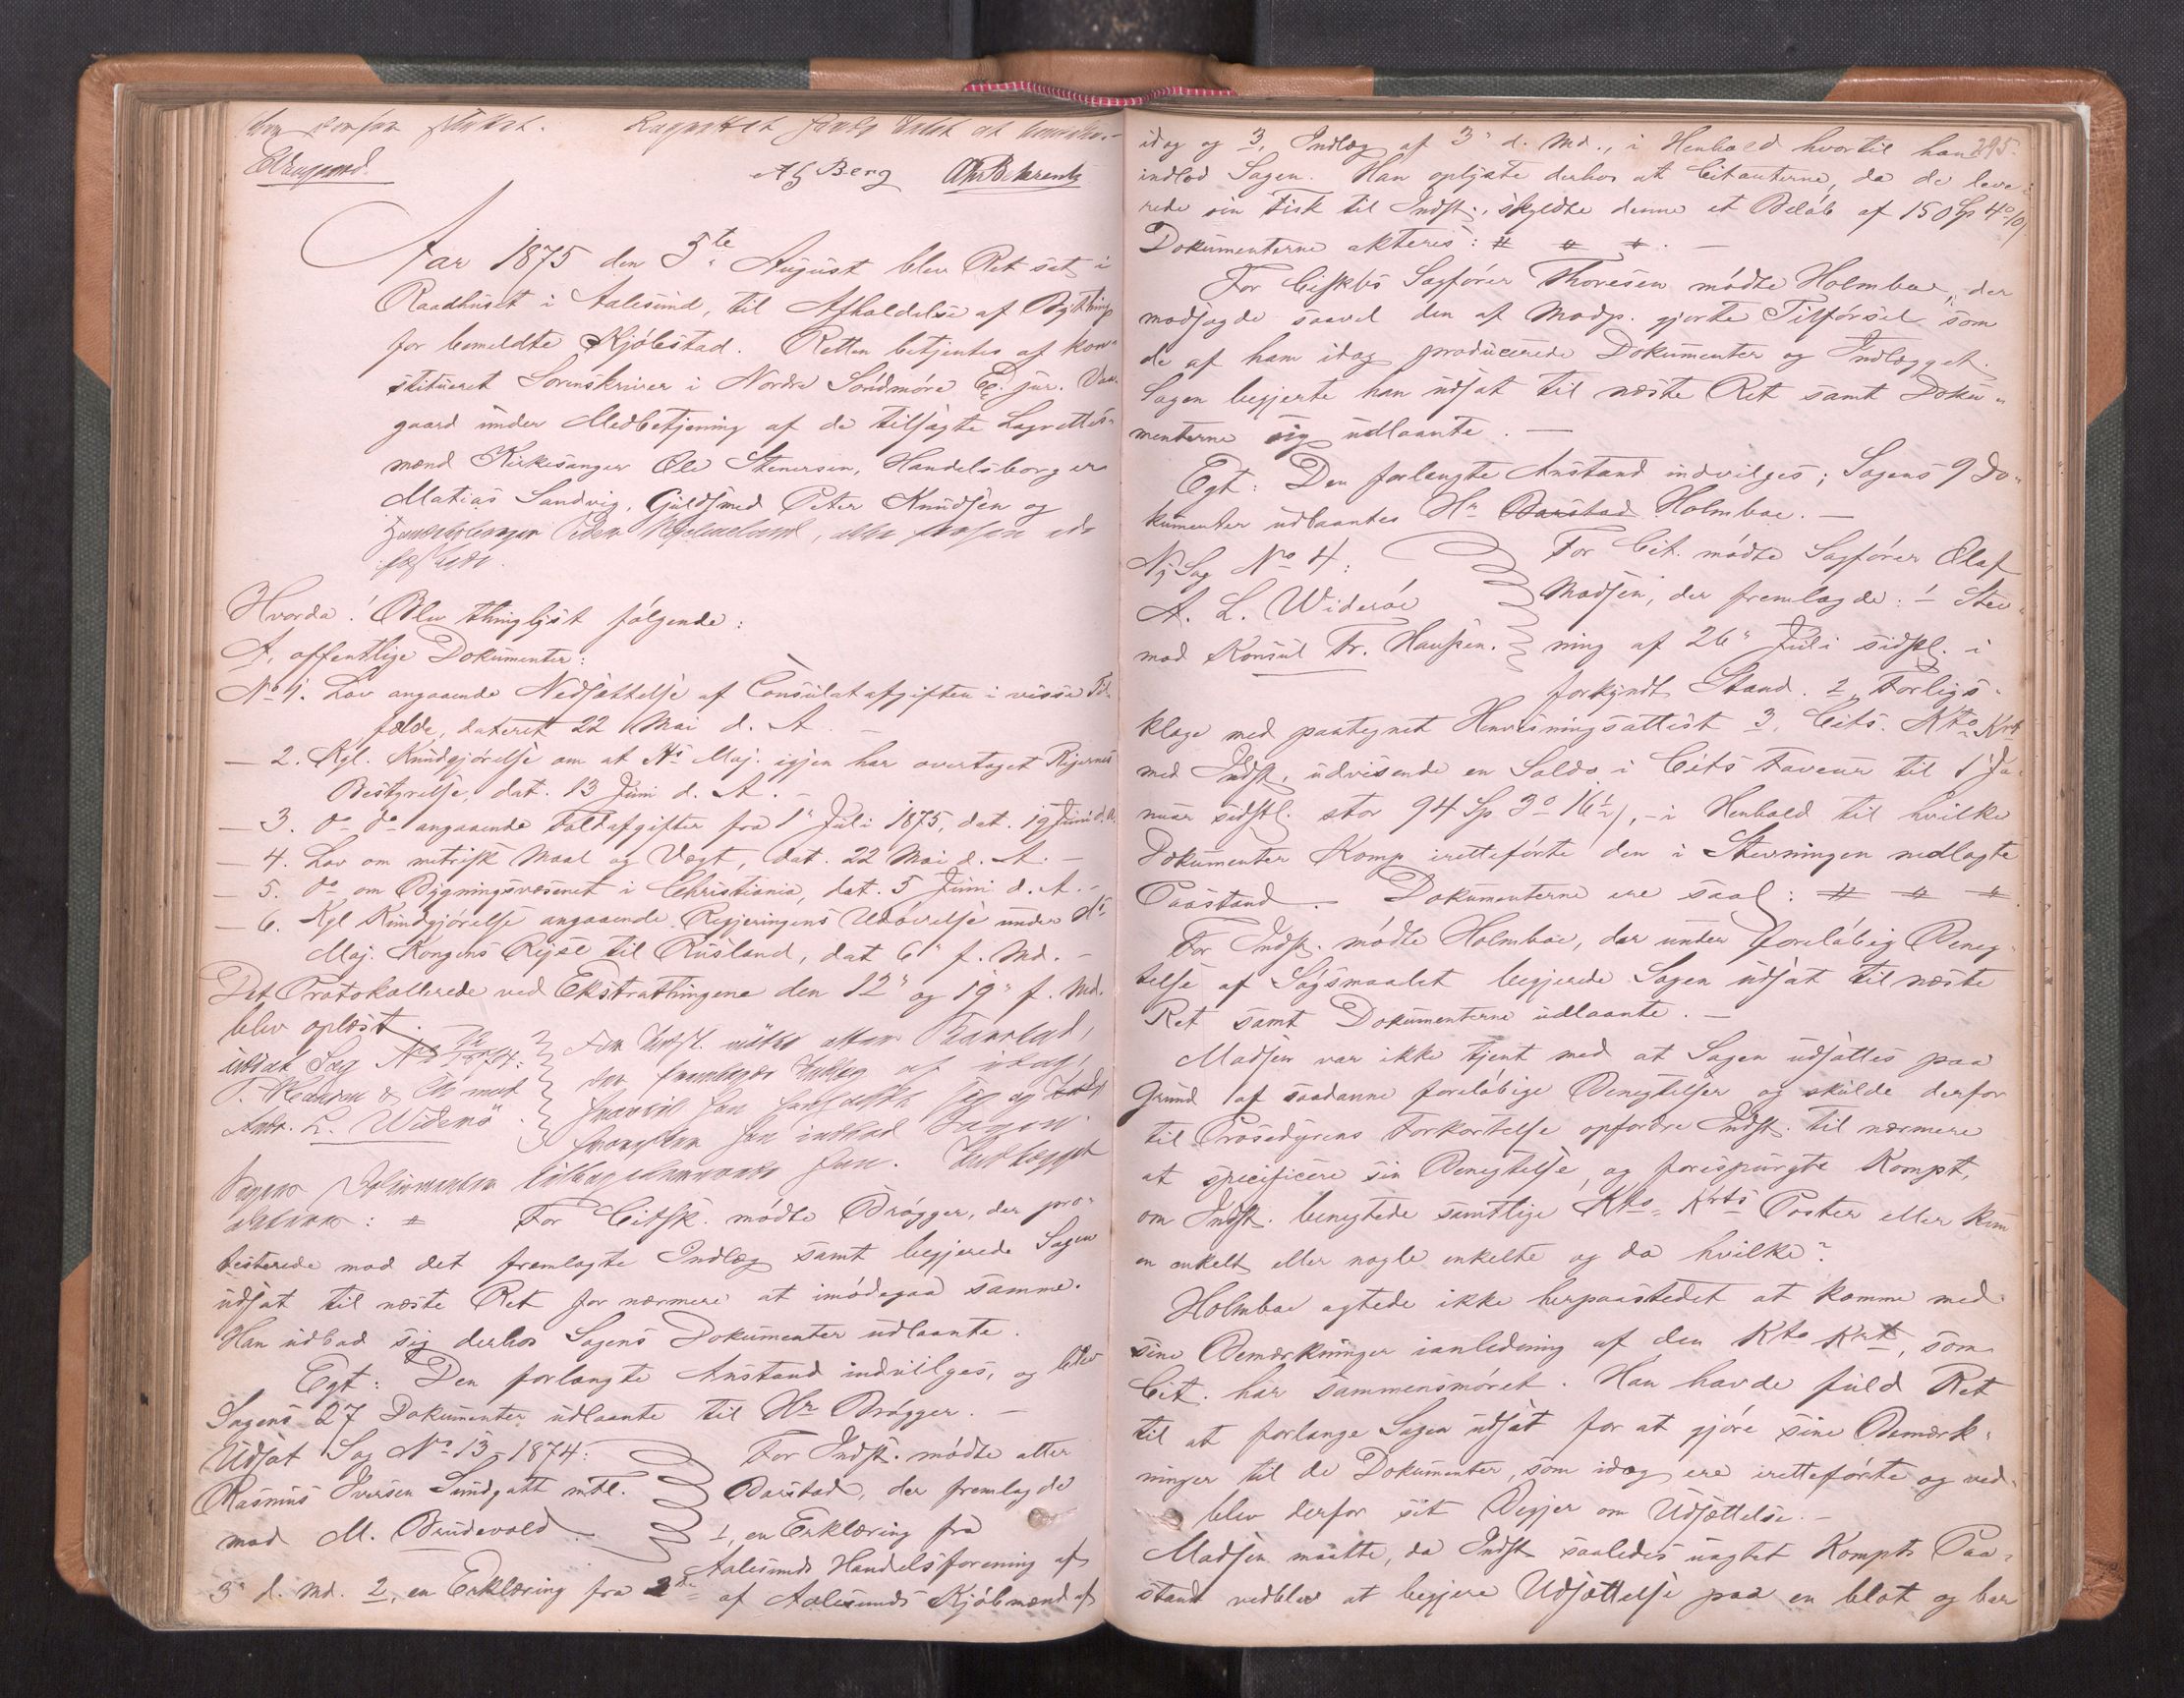 Aar 1875 den 3te August blev Ret sat i
Raadhuset i Aalesund, til Afholdelse af Bything
for bemeldte Kjøbstad. Retten betjentes af kon-
stitueret Sorenskriver i Nordre Søndmøre Cd. jur. Vaa-
gaard under Medbetjening af de tilsagte Lagrettes-
mænd Kirkesanger Ole Stenersen, Handelsborger
Matias Sandvig, Guldsmed Peter Knudsen og
Handelsborger Peder
Hvorda! Blev thinglyst følgende:
A, offentlige Dokumenter:
No 1. Lov angaaende Nedsættelse af Consulatafgiften i visse Til-
fælde, dateret 22 Mai d. A. —
— 2. Kgl. Kundgjørelse om at Hs Maj. igjen har overtaget Rigernes
Bestyrelse, dat. 13 Juni d. A. —
— 3. do do angaaende Toldafgifter fra 1" Juli 1875, dat. 19 Juni d. A.
— 4. Lov om metrisk Maal og Vægt, dat. 22 Mai d. A. —
— 5. do om Bygningsvæsenet i Christiania, dat. 5 Juni d. A. —
— 6. Kgl Kundgjørelse angaaende Regjeringens Udøvelse under Hs
Maj. Kongens Rejse til Rusland, dat 6" f. Md. —
Det Protokollerede ved Ekstrathingene den 12" og 19" f. Md.
blev oplæst.
Udsat Sag No
For Indst. mødte atter Baarstad,
der fremlagde Indlæg af idag,
T. Hansen & Co mod
Andr. L. Widerøe
han indlod Sagen.
Sagens Dokumenter tilbageleverede han. Indlægget
akteres: # For Citsk. mødte Brøgger, der pro-
testerede mod det fremlagte Indlæg samt begjerede Sagen
udsat til næste Ret for nærmere at imødegaa samme.
Han udbad sig derhos Sagens Dokumenter udlaante.
Egt: Den forlangte Anstand indvilges, og blev
Sagens 27 Dokumenter udlaante til Hr Brøgger. —
Udsat Sag No 13-1874:
Rasmus Iversen Sundgatt mfl.
mod M. Brudevold
For Indst. mødte atter
Barstad, der fremlagde
1, en Erklæring fra
Aalesunds Handelsforening af
3" d. Md. 2, en Erklæring fra af Aalesunds Kjøbmænd af
295.
idag og 3, Indlæg af 3" d. Md., i Henhold hvortil han
indlod Sagen. Han oplyste derhos at Citanterne, da de leve-
rede sin Fisk til Indst., skyldte denne et Beløb af 150 Sp
Dokumenterne akteres: # # #. —
For Citskbs Sagfører Thoresen mødte Holmboe, der
modsagde saavel den af Modp. gjorte Tilførsel som
de af ham idag producerede Dokumenter og Indlægget.
Sagen begjerte han udsat til næste Ret samt Doku-
menterne sig udlaante. —
Egt: Den forlangte Anstand indvilges; Sagens 9 Do-
kumenter udlaantes Hr Barstad Holmboe. —
Ny Sag No 4:
A. L. Widerøe
mod Konsul Fr. Hansen.
For Cit. mødte Sagfører Olaf
Madsen, der fremlagde: 1 Stev-
ning af 26" Juli sidstl. i
forkyndt Stand. 2, Forligs-
klage med paategnet Henvisningsattist 3, Cits. Kto Krt
med Indst. udvisende en Saldo i Cits Faveur til 1 Ja-
nuar sidstl. stor 94 Sp 3o 16½, - i Henhold til hvilke
Dokumenter Komp irettefórte den i Stevningen nedlagte
Paastand. — Dokumenterne ere saal: # # #
For Indst. mødte Holmboe, der under foreløbig Beneg-
telse af Søgsmaalet begjerede Sagen udsat til næste
Ret samt Dokumenterne udlaante. —
Madsen var ikke tjent med at Sagen udsattes paa
Grund af saadanne foreløbige Benegtelser og skulde derfor
til Prosedyrens Forkortelse opfordre Indst. til nærmere
at specificere sin Benegtelse, og forespurgte Kompt,
om Indst. benegtede samtlige Kto- Krts Poster eller kun
en enkelt eller nogle enkelte og da hvilke?
Holmboe agtede ikke herpaastedet at komme med
sine Bemærkninger ianledning af den Kto Krt, som
Cit. har sammensmøret. Han havde fuld Ret
til at forlange Sagen udsat for at gjøre sine Bemærk-
ninger til de Dokumenter, som idag ere irettefórte og ved-
blev derfor sit Begjer om Udsættelse. —
Madsen maatte, da Indst. saaledes uagtet Kompts Paa-
stand vedblev at begjere Udsættelse paa en blot og bar